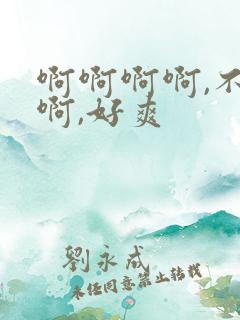 啊啊啊啊,不
啊,好爽
劉永成
未经同意禁止转载